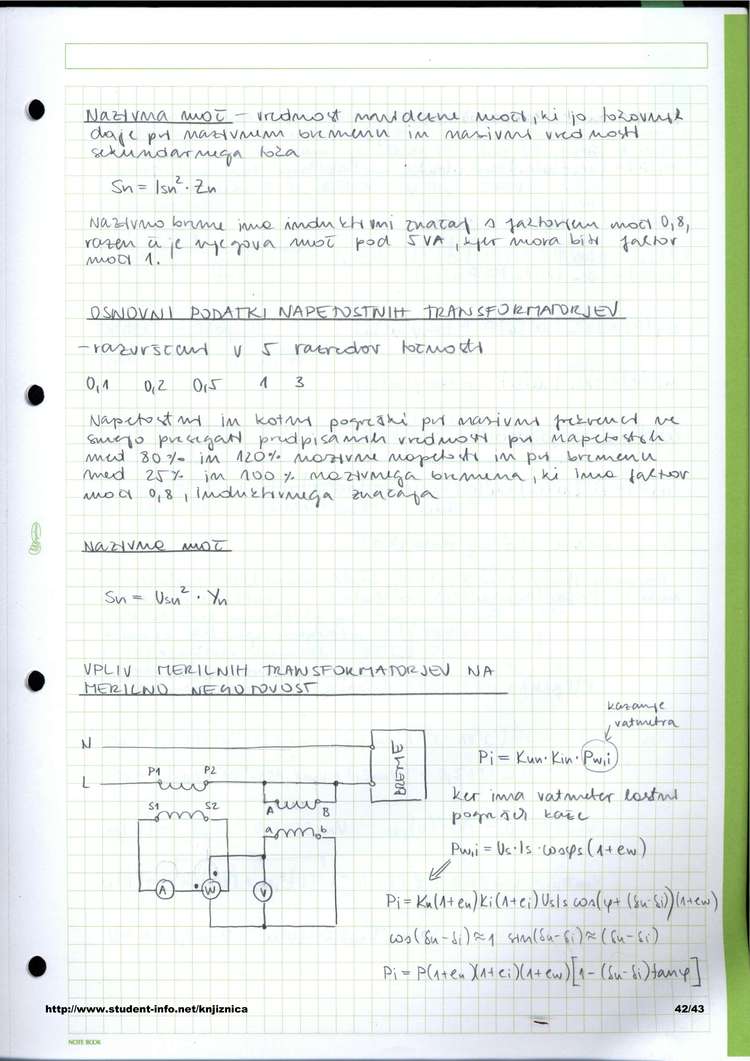 Nazivna moč – vrednost navidezne moči, ki jo tokovnik
daje pri nazivnem bremenu in nazivni vrednosti
sekundarnega toka
Sn = Isn² · Zn
Nazivno breme ima induktivni značaj s faktorjem moči 0,8,
razen če je njegova moč pod 5VA, kjer mora biti faktor
moči 1.
OSNOVNI PODATKI NAPETOSTNIH TRANSFORMATORJEV
– razvrščani v 5 razredov točnosti
0,1 0,2 0,5 1 3
Napetostni in kotni pogreški pri nazivni frekvenci ne
smejo presegati predpisanih vrednosti pri napetostih
med 80% in 120% nazivne napetosti in pri bremenu
med 25% in 100% nazivnega bremena, ki ima faktor
moči 0,8, induktivnega značaja
Nazivna moč
Sn = Usn² · Yn
VPLIV MERILNIH TRANSFORMATORJEV NA
MERILNO NEGOTOVOST
kazanje
vatmetra
N
L
P1 P2
S1 S2
A B
a b
BREME
A W V
Pi = Kun · Kin · Pw,i
ker ima vatmeter lastni
pogrešek kaže
Pw,i = Us · Is · cosφs (1+ew)
Pi = Ku(1+eu)Ki(1+ei)UsIs cos(φ+(δu-δi))(1+ew)
cos(δu-δi)≈1 sin(δu-δi)≈(δu-δi)
Pi = P(1+eu)(1+ei)(1+ew)[1-(δu-δi)tanφ]
http://www.student-info.net/knjiznica
42/43
NOTE BOOK